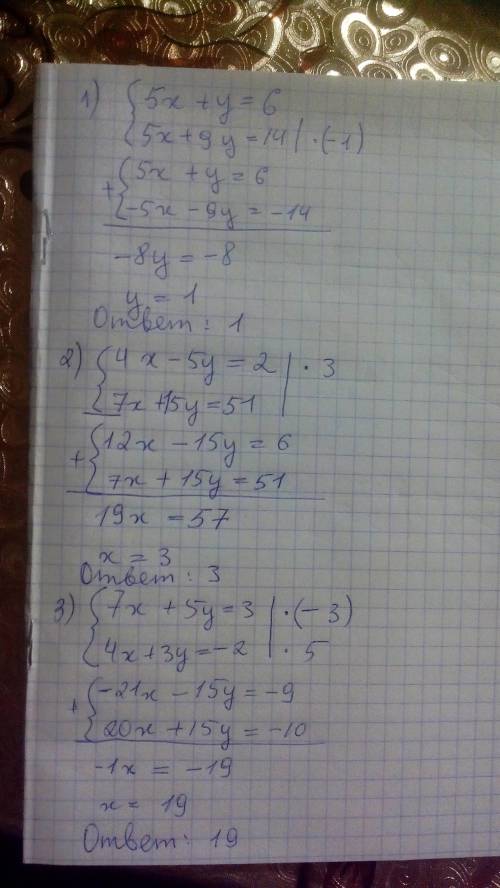 1) {5x + y = 6
{5x + 9y = 14 | · (-1)
+ {5x + y = 6
{-5x - 9y = -14
-8y = -8
y = 1
Ответ: 1
2) {4x - 5y = 2 | · 3
{7x + 15y = 51
+ {12x - 15y = 6
{7x + 15y = 51
19x = 57
x = 3
Ответ: 3
3) {7x + 5y = 3 | · (-3)
{4x + 3y = -2 | · 5
+ {-21x - 15y = -9
{20x + 15y = -10
-1x = -19
x = 19
Ответ: 19